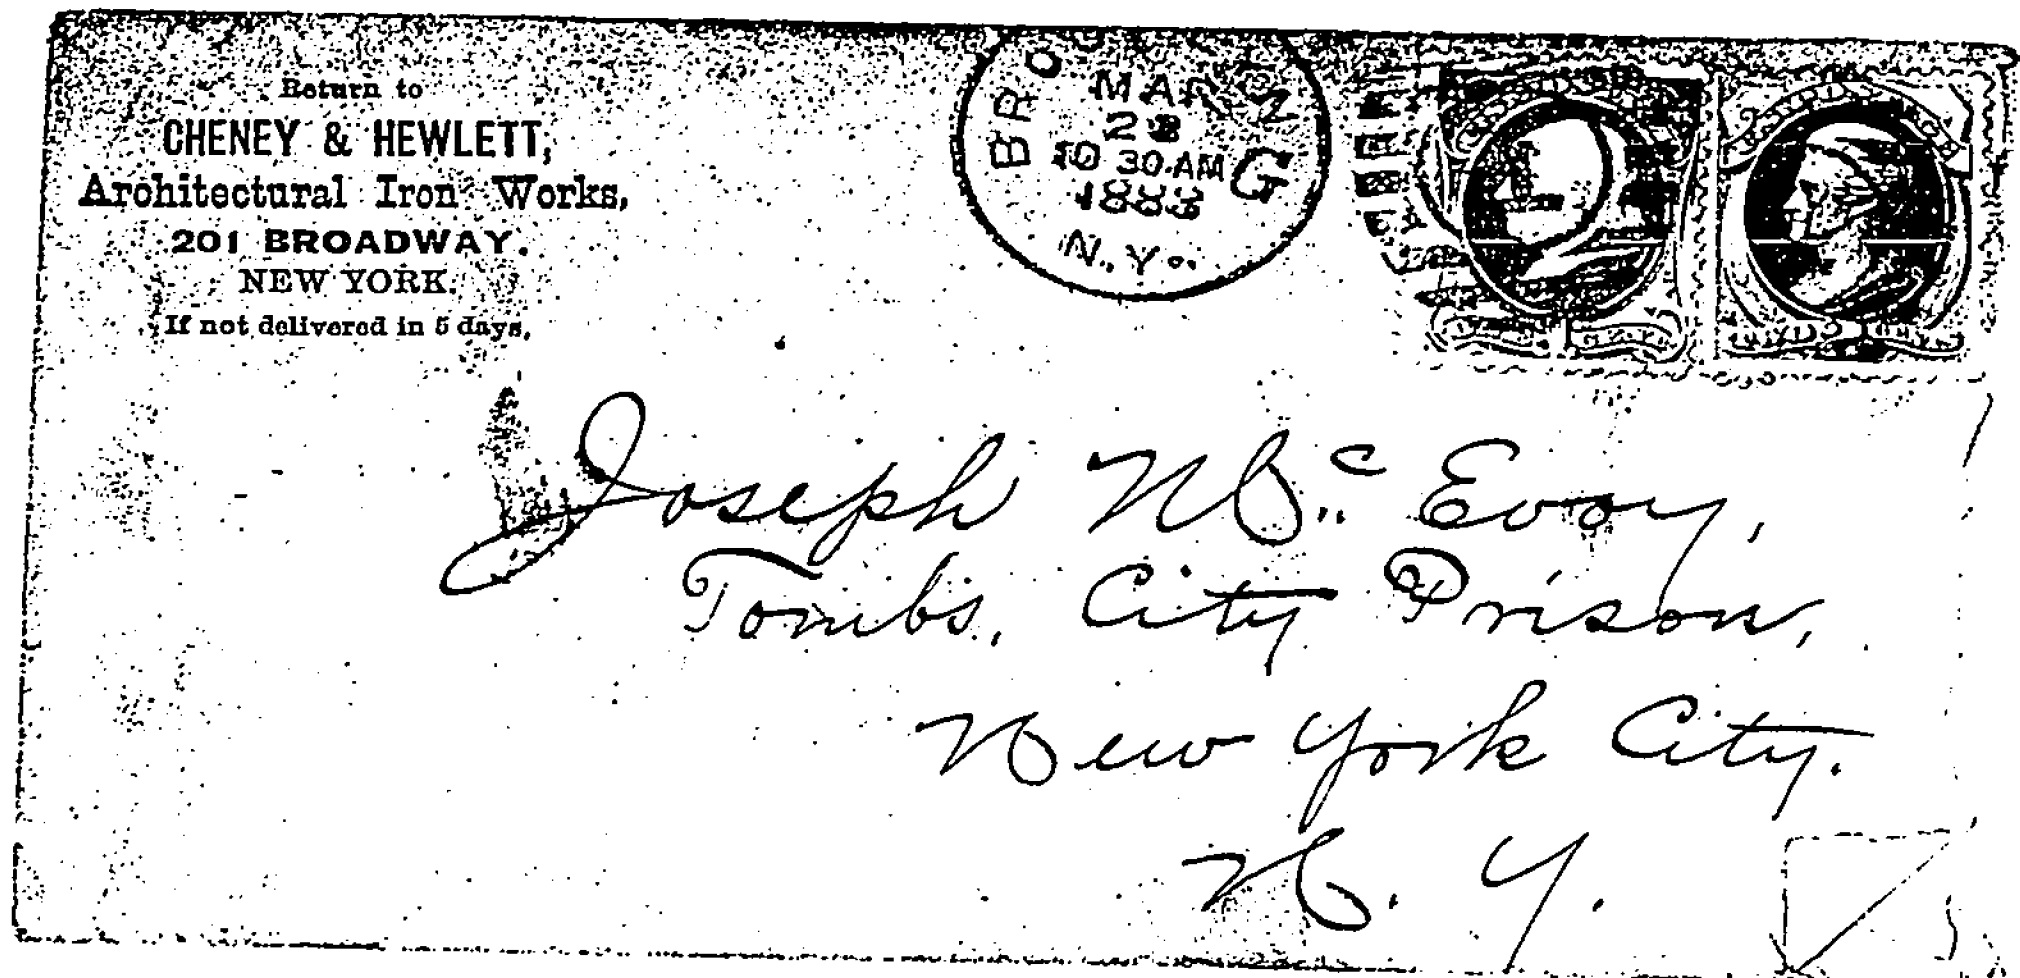 Return to
CHENEY & HEWLETT,
Architectural Iron Works,
201 BROADWAY.
NEW YORK.
If not delivered in 5 days,
BRO
MAR
10 30 AM
1883
N.Y.
Joseph Mc Evoy,
Tombs, City Prison,
New York City.
N. Y.